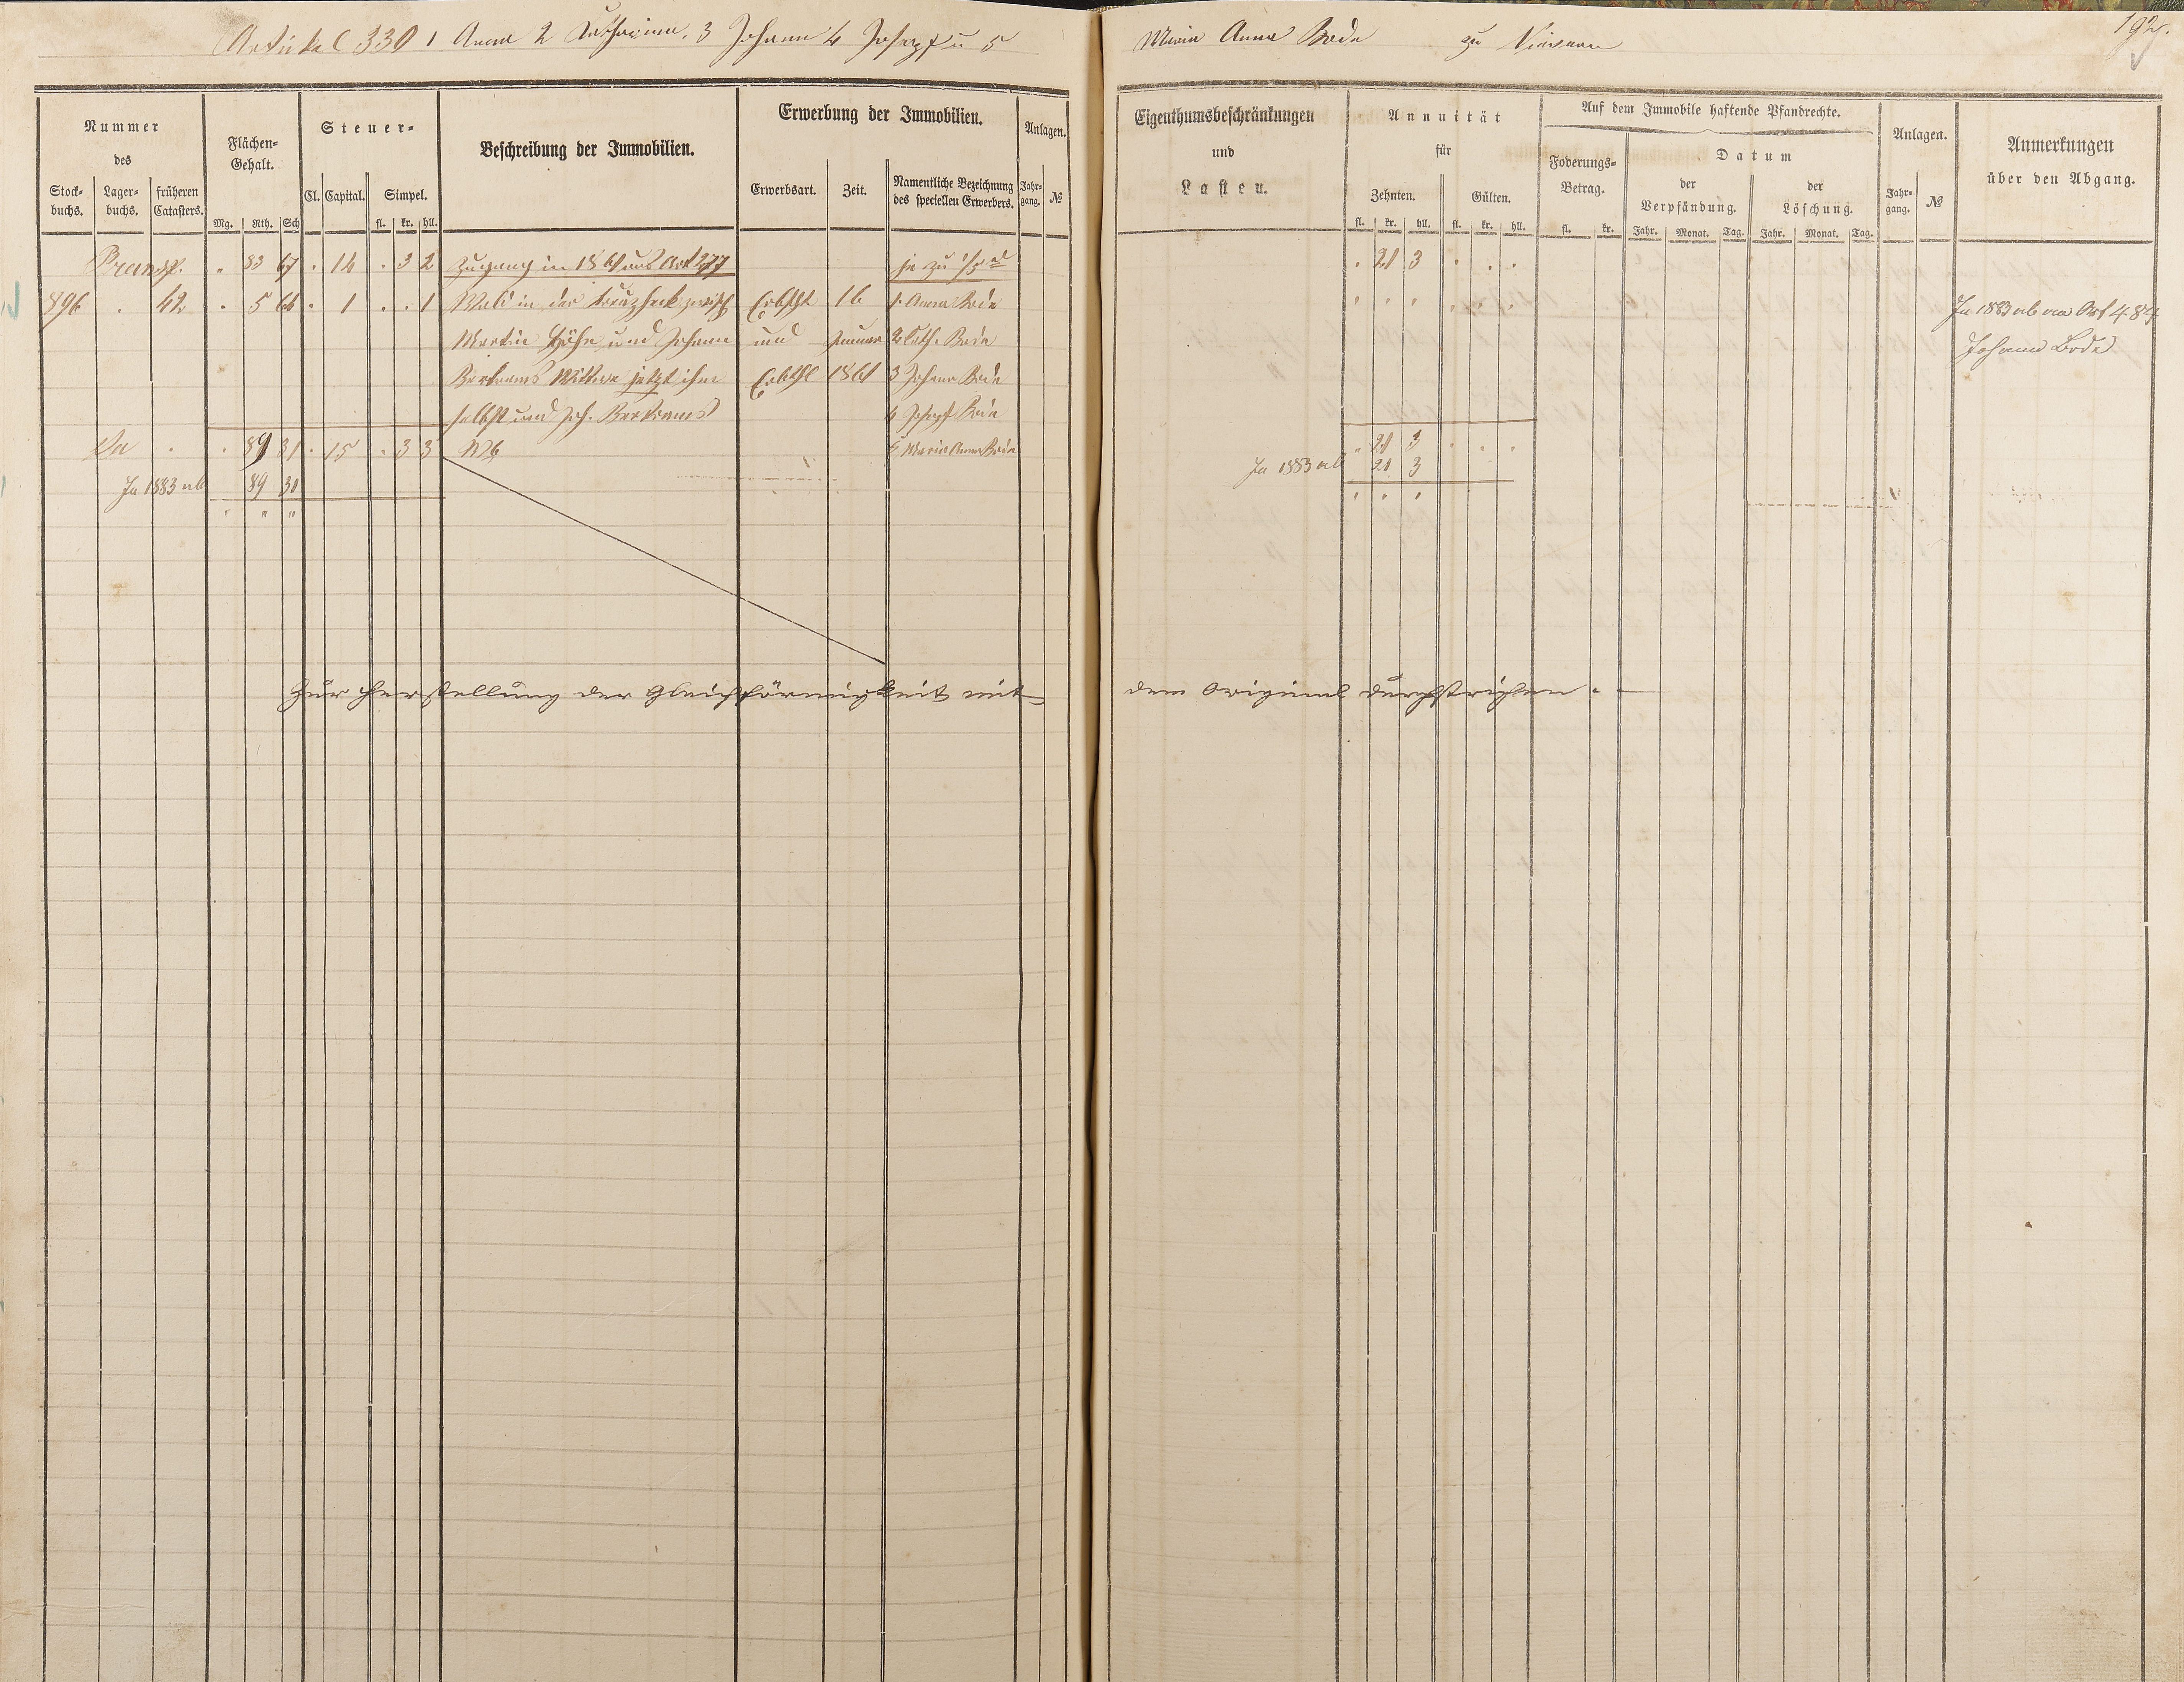 Artikel 330 1 Anna 2 Catharina, 3 Johann 4 Joseph u 5 Maria Anna Bode zu
192.
Nummer des
Stock-buchs. Lager-buchs. früheren Catasters.
Flächen-Gehalt.
Mg. Rth. Sch
Steuer-
Cl. Capital. Simpel.
fl. kr. hll.
Beschreibung der Immobilien.
Erwerbung der Immobilien.
Erwerbsart. Zeit. Namentliche Bezeichnung des speciellen Erwerbers.
Anlagen.
Jahr-gang. №
Eigenthumsbeschränkungen und Lasten.
Annuität für
Zehnten. Gülten.
fl. kr. hll. fl. kr. hll.
Auf dem Immobile haftende Pfandrechte.
Foderungs-Betrag.
fl. kr.
Datum
der Verpfändung. der Löschung.
Jahr. Monat. Tag. Jahr. Monat. Tag.
Anlagen.
Jahr-gang. №
Anmerkungen über den Abgang.
Transp. " 83 67 " 14 " 3 2 Zugang in 1861 aus Art 277 je zu 1/5 tel " 21 3 " " "
896 " 42 " 5 64 " 1 " " 1 Wald in der Kreuzheck zwisch Erbscht 16 1. Anna Bode " " " " " " In 1883 ab nach Art 484
Martin Höhn und Johann und Januar 2 Cath. Bode Johann Bode
Bertrams Wittwe jetzt ihm Erbthl 1861 3 Johann Bode
selbst und Joh. Bertrams 4 Joseph Bode
" 89 31 " 15 " 3 3 Wb 5 Maria Anna Bode " 21 3 " " "
In 1883 ab 89 31 In 1883 ab 21 3
" " " " " "
Zur Herstellung der Gleichförmigkeit mit dem Original durchstrichen. —